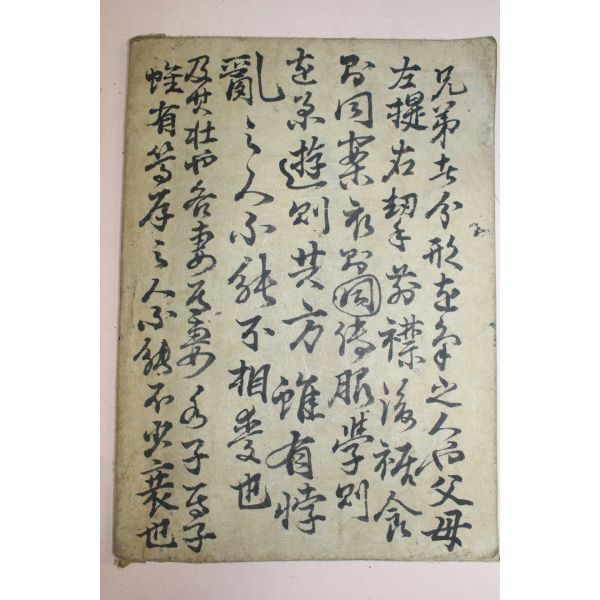 兄弟者分形連氣之人也父母
左提右挈前襟後裾食
則同案衣則同傳服學則
連業遊則共方雖有悖
亂之人不能不相愛也
及其壯也各妻其妻各子其子
雖有篤厚之人不能不少衰也